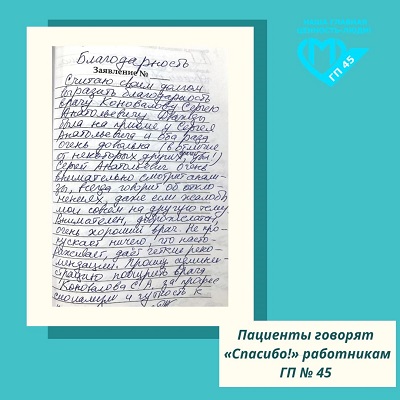 НАША ГЛАВНАЯ
ЦЕННОСТЬ - ЛЮДИ
ГП 45
Благодарность
Заявление №
Считаю своим долгом
выразить благодарность
врачу Коновалову Сергею
Анатольевичу. Дважды
была на приеме у Сергея
Анатольевича и оба раза
очень довольна (в отличие
от некоторых других, увы!)
Сергей Анатольевич очень
внимательно смотрит анали-
зы, всегда говорит об откло-
нениях, даже если жалобы
мои совсем на другую тему.
Внимателен, доброжелат.,
очень хороший врач. Не про-
пускает ничего, что насто-
раживает, даёт четкие реко-
мендации. Прошу админи-
страцию поощрить врача
Коновалова С.А. за профес-
сионализм и чуткость к
Пациенты говорят
«Спасибо!» работникам
ГП № 45